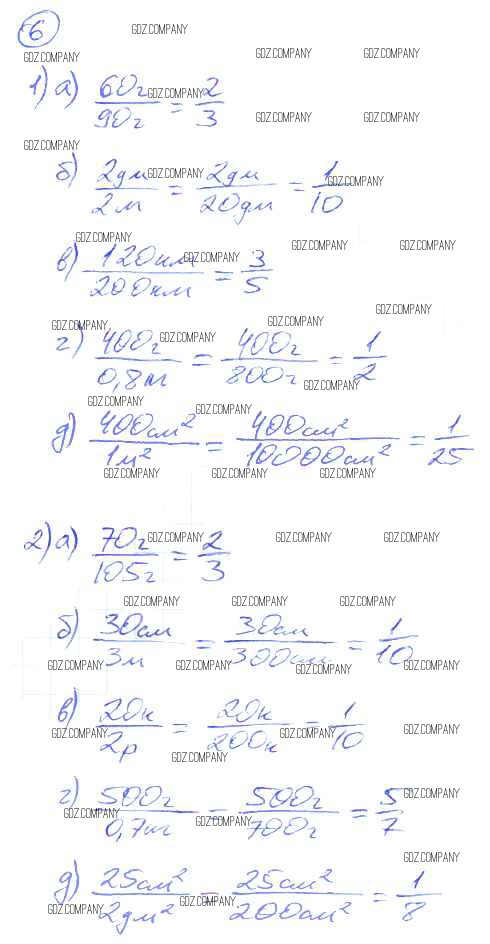 6
1) а) 60г/90г = 2/3
б) 2дм/2м = 2дм/20дм = 1/10
в) 120км/200км = 3/5
г) 400г/0,8м = 400г/800г = 1/2
д) 400см²/1м² = 400см²/10000см² = 1/25
2) а) 70г/105г = 2/3
б) 30см/3м = 30см/300см = 1/10
в) 20к/2р = 20к/200к = 1/10
г) 500г/0,7кг = 500г/700г = 5/7
д) 25см²/2дм² = 25см²/200см² = 1/8
GDZ.COMPANY